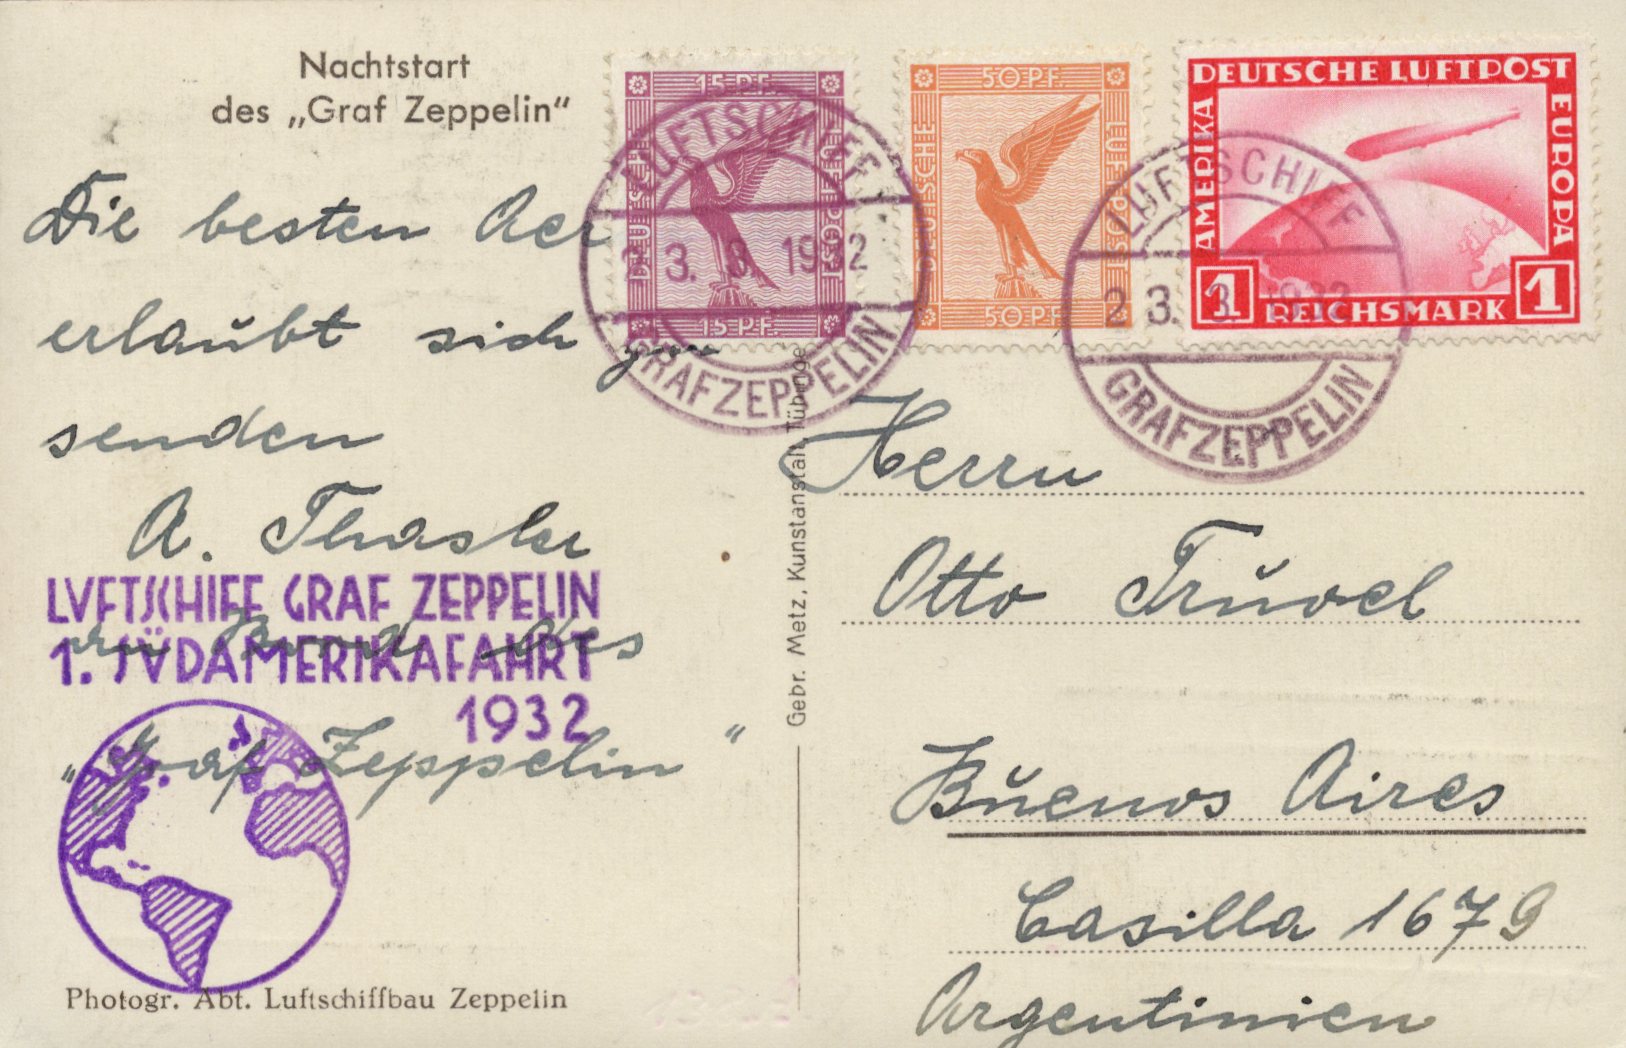 Nachtstart
des „Graf Zeppelin“
Die besten
erlaubt sich zu
senden
A. Thasler
an Bord des
„Graf Zeppelin“
LUFTSCHIFF GRAF ZEPPELIN
1. SÜDAMERIKAFAHRT
1932
Photogr. Abt. Luftschiffbau Zeppelin
Gebr. Metz, Kunstanstalt, Tübingen
15 PF.
DEUTSCHE
LUFTPOST
15 PF.
50 PF.
DEUTSCHE
LUFTPOST
50 PF.
DEUTSCHE LUFTPOST
AMERIKA
EUROPA
1 REICHSMARK 1
LUFTSCHIFF
23. 3. 1932
GRAF ZEPPELIN
LUFTSCHIFF
23. 3. 1932
GRAF ZEPPELIN
Herrn
Otto
Buenos Aires
Casilla 1679
Argentinien